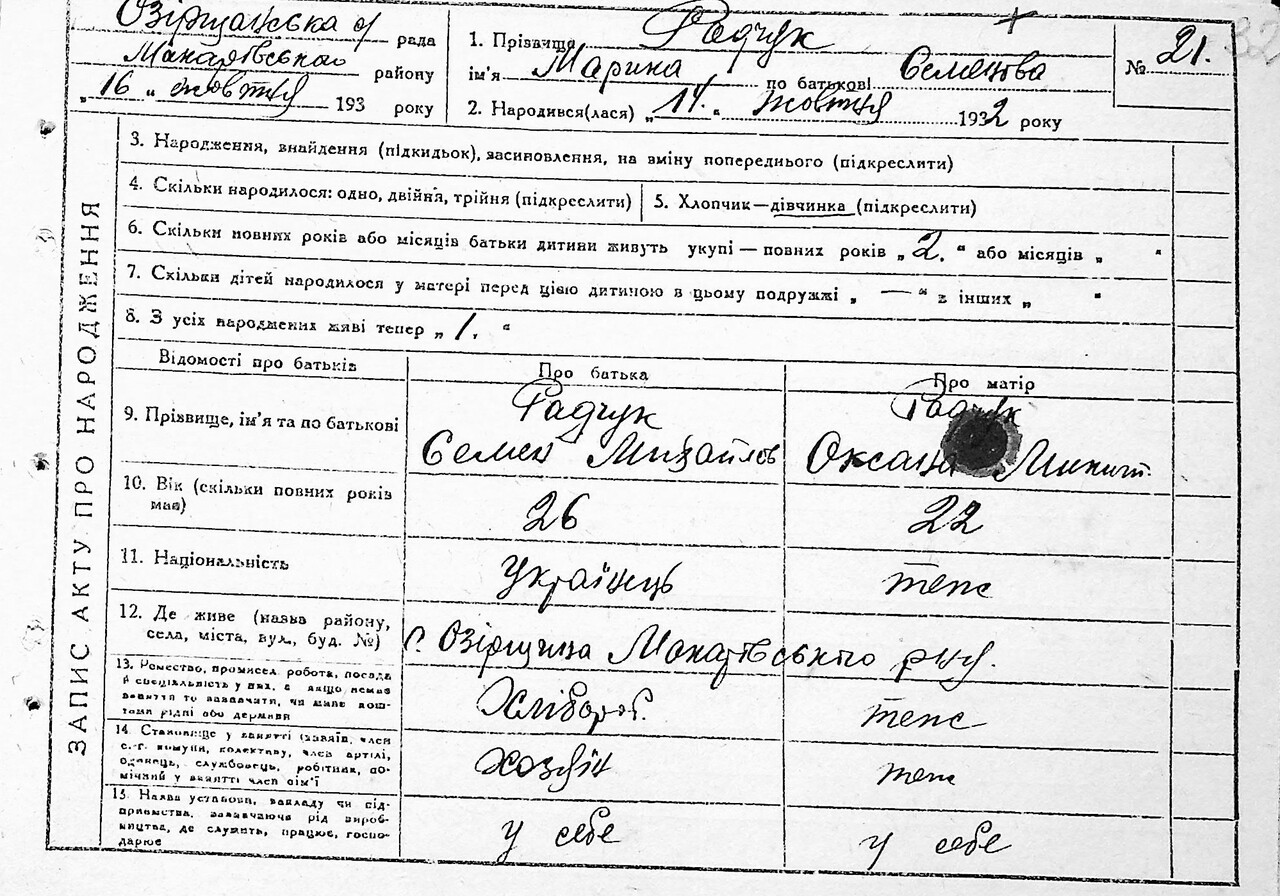 Озірщанська с/ рада
Макарівського району
„ 16 „ жовтня 193 року
1. Прізвище Радчук
ім'я Марина по батькові Семенова
2. Народився(лася) „ 14. „ жовтня 1932 року
№ 21.
32
ЗАПИС АКТУ ПРО НАРОДЖЕННЯ
3. Народження, знайдення (підкидьок), засиновлення, на зміну попереднього (підкреслити)
4. Скільки народилося: одно, двійня, трійня (підкреслити) 5. Хлопчик—дівчинка (підкреслити)
6. Скільки повних років або місяців батьки дитини живуть укупі — повних років „ 2. “ або місяців „ “
7. Скільки дітей народилося у матері перед цією дитиною в цьому подружжі „ — “ з інших „ “
8. З усіх народжених живі тепер „ 1. “
Відомості про батьків Про батька Про матір
9. Прізвище, ім'я та по батькові Радчук Радчук
Семен Михайлов Оксана Микит.
10. Вік (скільки повних років має) 26 22
11. Національність Українець теж
12. Де живе (назва району, села, міста, вул., буд. №) с. Озірщина Макарівського р-ну.
13. Ремество, промисел, робота, посада й спеціяльність у них, а якщо немає заняття то зазначити, чи живе коштами рідні або держави Хлібороб. теж
14. Становище у занятті (хазяїн, член с.-г. комуни, колективу, член артілі, одинець, службовець, робітник, помічний у занятті член сім'ї Хозяїн теж
15. Назва установи, закладу чи підприємства, зазначаючи рід виробництва, де служить, працює, господарює у себе у себе